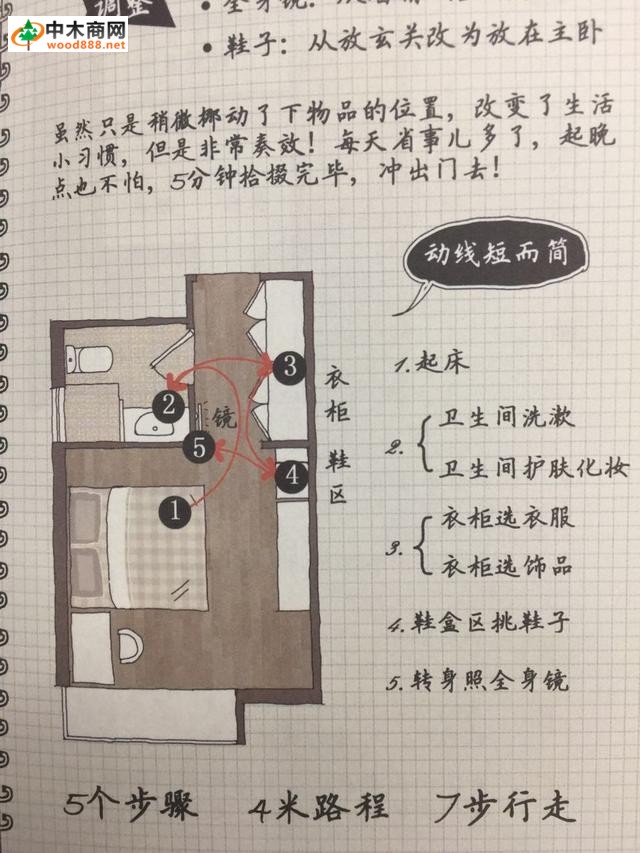 调整
中木商网
wood888.net
• 鞋子：从放玄关改为放在主卧
虽然只是稍微挪动了下物品的位置，改变了生活
小习惯，但是非常奏效！每天省事儿多了，起晚
点也不怕，5分钟拾掇完毕，冲出门去！
动线短而简
3
衣柜
2
镜
5
鞋区
4
1
1.起床
2.
卫生间洗漱
卫生间护肤化妆
3.
衣柜选衣服
衣柜选饰品
4.鞋盒区挑鞋子
5.转身照全身镜
5个步骤 4米路程 7步行走